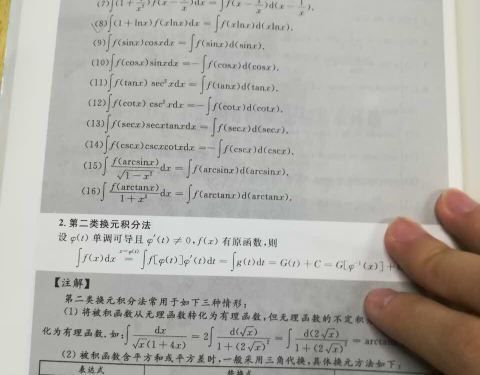 (7)∫(1 + 1/x²)f(x − 1/x)dx = ∫f(x − 1/x)d(x − 1/x).
(8)∫(1 + lnx)f(xlnx)dx = ∫f(xlnx)d(xlnx).
(9)∫f(sinx)cosxdx = ∫f(sinx)d(sinx).
(10)∫f(cosx)sinxdx = −∫f(cosx)d(cosx).
(11)∫f(tanx) sec²xdx = ∫f(tanx)d(tanx).
(12)∫f(cotx) csc²xdx = −∫f(cotx)d(cotx).
(13)∫f(secx)secxtanxdx = ∫f(secx)d(secx).
(14)∫f(cscx)cscxcotxdx = −∫f(cscx)d(cscx).
(15)∫f(arcsinx)/√(1−x²) dx = ∫f(arcsinx)d(arcsinx).
(16)∫f(arctanx)/(1+x²) dx = ∫f(arctanx)d(arctanx).
2. 第二类换元积分法
设 φ(t) 单调可导且 φ′(t) ≠ 0, f(x) 有原函数,则
∫f(x)dx =(x=φ(t)) ∫f[φ(t)]φ′(t)dt = ∫g(t)dt = G(t) + C = G[φ⁻¹(x)] +
【注解】
第二类换元积分法常用于如下三种情形:
(1) 将被积函数从无理函数转化为有理函数,但无理函数的不定积
化为有理函数.如:∫dx/(√x(1+4x)) = 2∫d(√x)/(1+(2√x)²) = ∫d(2√x)/(1+(2√x)²) = arctan
(2) 被积函数含平方和或平方差时,一般采用三角代换,具体换元方法如下:
表达式 替换式